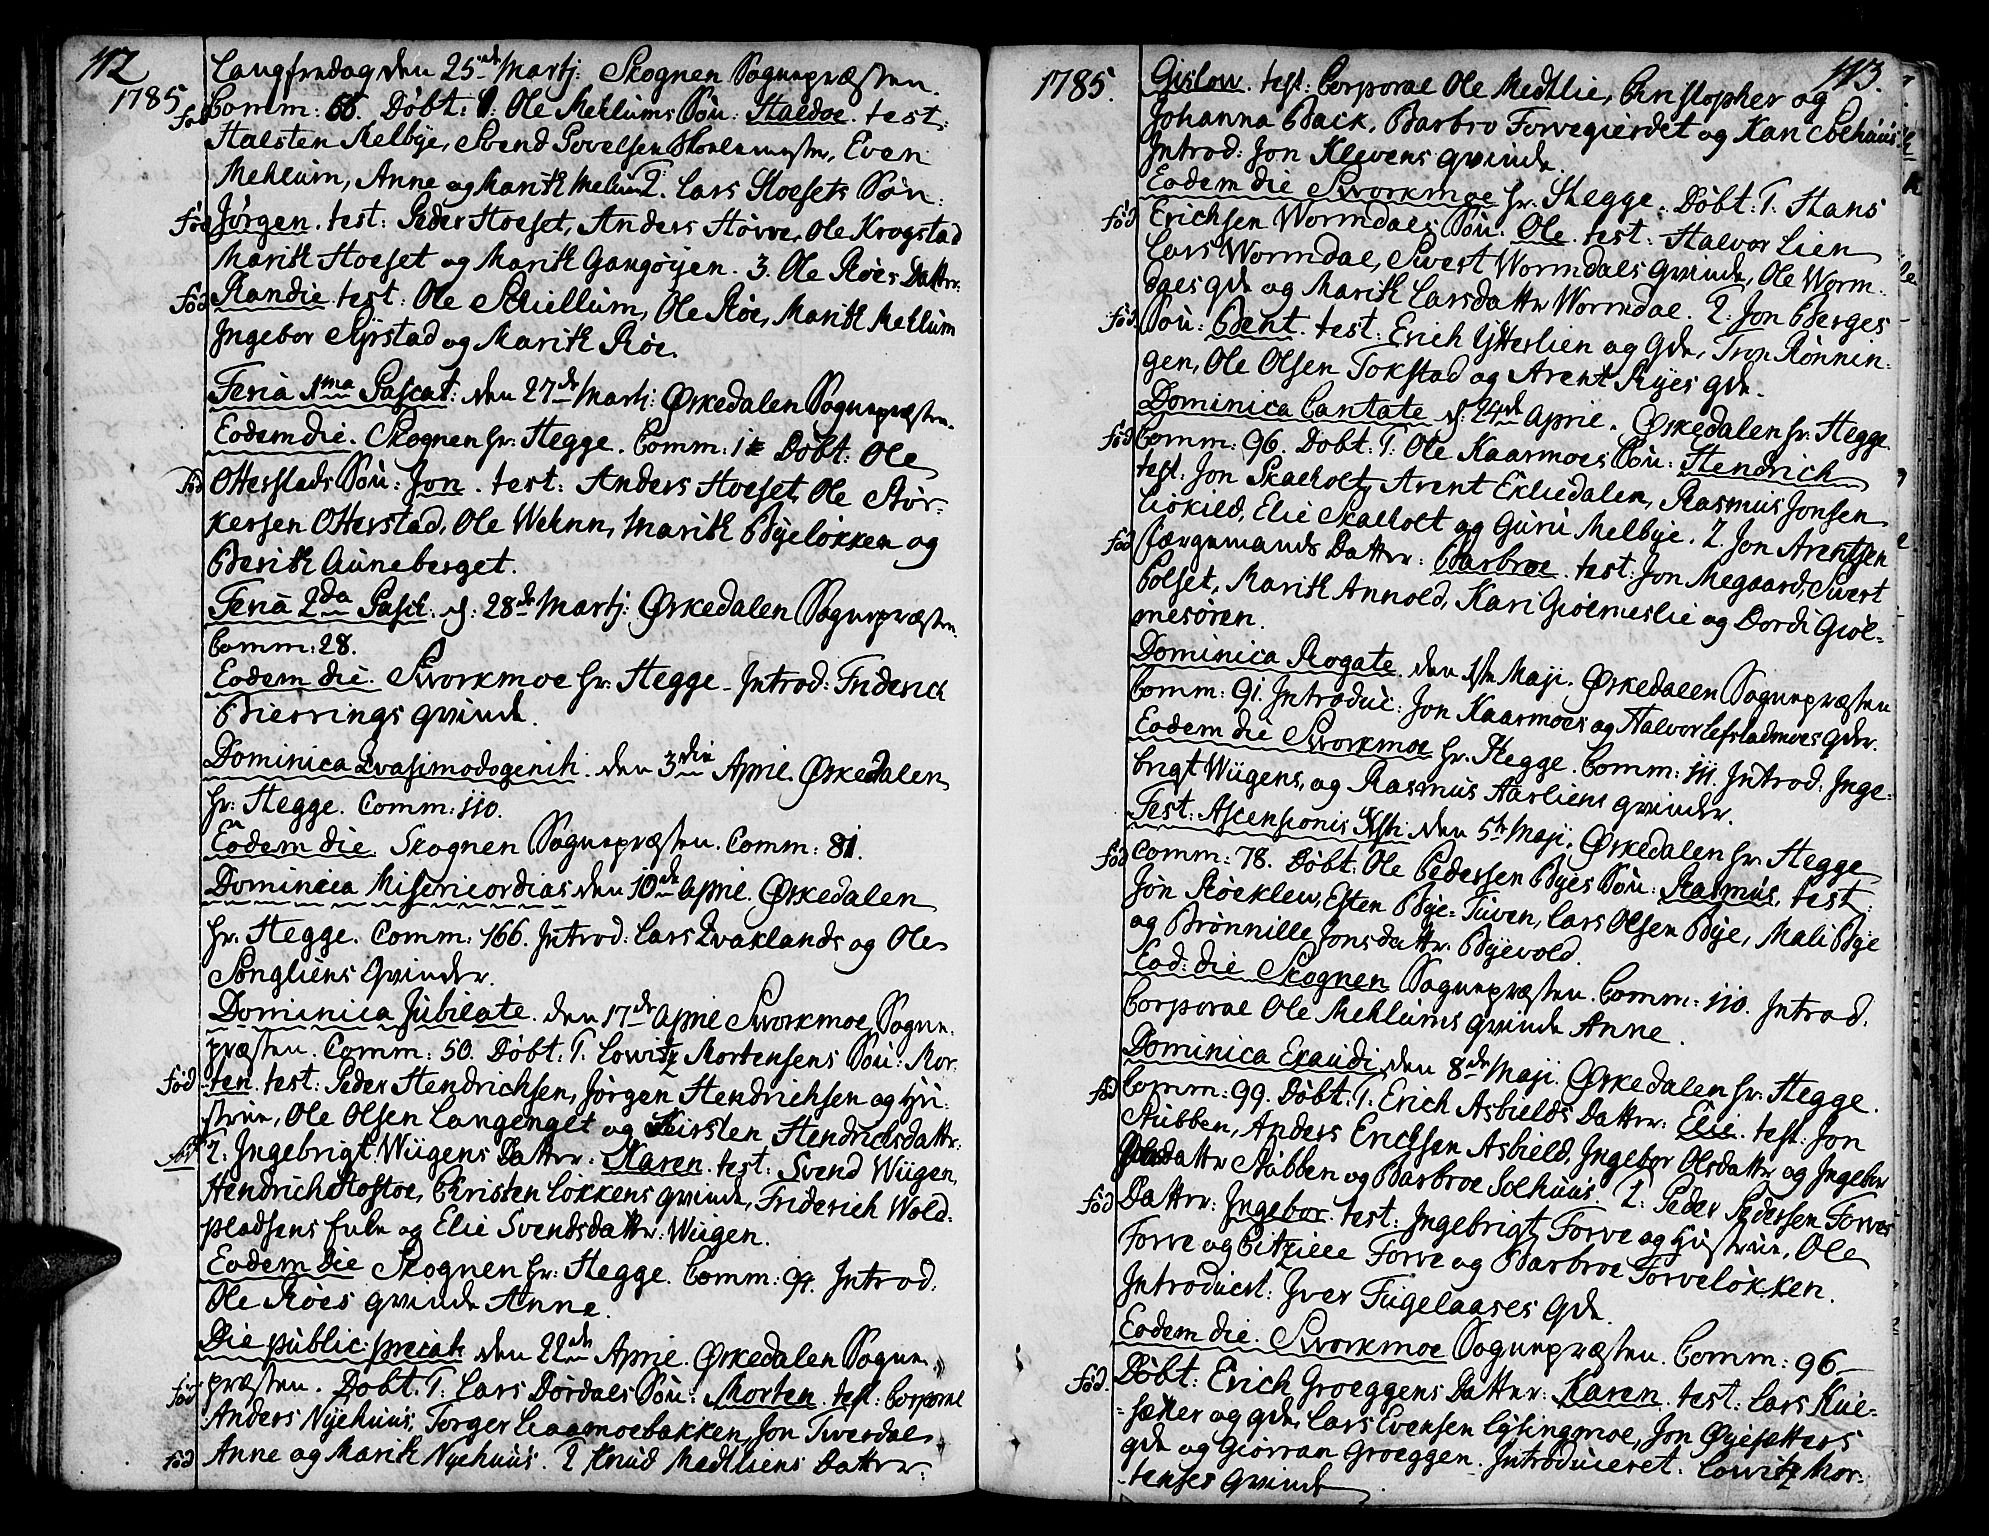 112
1785
Langfredag den 25de Martj: Skognen Sognepræsten.
Comm: 66. Døbt: 1. Ole Mehlums Søn: Haldoe. test:
fød
Halsten Melbye, Svend Povelsen Skolemester, Even
Mehlum, Anne og Marith Melum 2. Lars Hoesets Søn:
fød Jørgen. test: Peder Hoeset, Anders Høvve, Ole Krogstad
Marith Hoeset og Marith Gangøyen. 3. Ole Røes Datter:
fød Randie test: Ole Schiellum, Ole Røe, Marith Mehlum
Ingebor Syrstad og Marith Røe.
Feria 1ma Pascat: den 27de Martj: Ørkedalen Sognepræsten.
Eodem die. Skognen hr: Hegge. Comm: Døbt: Ole
fød Otterstads Søn: Jon. test: Anders Hoeset, Ole Stør-
kersen Otterstad, Ole Wehnn, Marith Byeløkken og
Berith Auneberget.
Feria 2da Pasch: d: 28de Martj: Ørkedalen Sognepræsten.
Comm: 28.
Eodem die. Sworkmoe hr: Hegge. Introd: Friderich
Bierrings Qvinde.
Dominica Qvasimodogenith. den 3die April. Ørkedalen
hr: Hegge. Comm: 110.
Eodem die Skognen Sognepræsten. Comm: 81.
Dominica Misericordias den 10de April. Ørkedalen
hr. Hegge. Comm: 166. Introd: Lars Qvaklands og Ole
Songliens Qvinder.
Dominica Jubilate. den 17de April Sworkmoe Sogne-
præsten. Comm: 50. Døbt: 1. Lowitz Mortensens Søn: Mor-
fød ten. test: Peder Hendrichsen, Jørgen Hendrichsen og Hu-
strue, Ole Olsen Langenget og Kirsten Hendrichsdatter:
fød 2. Ingebrigt Wiigens Datter: Karen. test: Svend Wiigen,
Hendrich Hostoe, Christen Løkkens Qvinde, Friderich Wold-
pladsens fule og Elie Svendsdatter: Wiigen.
Eodem die Skognen hr: Hegge. Comm: 99. Introd:
Ole Røes Qvinde Anne.
Die public: precat: den 22de April. Ørkedalen Sogne-
præsten. Døbt: 1. Lars Dørdals Søn: Morten. test: Corporal
fød
Anders Nyehuus, Torger Laamoebakken, Jon Tverdal,
Anne og Marith Nyehuus. 2 Knud Medtliens Datter:
fød
113.
1785.
Gislow. test: Corporal Ole Medtlie, Christopher og
Johanna Back, Barbro Forvegierdet og Kari Solhuus.
Introd: Jon Klevens Qvinde.
Eodem die Sworkmoe hr. Hegge. Døbt: 1. Hans
fød Erichsen Wormdals Søn. Ole. test: Halvor Lien
Lars Wormdal, Sivert Wormdals Qvinde, Ole Worm-
dals Qde og Marith Larsdatter Wormdal. 2. Jon Berges
fød Søn: Bent. test: Erich Ytterlien og Qde, Tron Rønnin-
gen, Ole Olsen Tokstad og Arent Ryes Qde.
Dominica Cantate d: 24de April. Ørkedalen hr. Hegge.
fød Comm: 96. Døbt: 1. Ole Kaarmoes Søn: Hendrich
test: Jon Skalholt, Arent Ekliedalen, Rasmus Jonsen
Liøkild, Elie Skalholt og Guru Melbye. 2. Jon Arentsen
fød færgemands Datter: Barbroe. test: Jon Megaard, Sivert
Bolset, Marith Annold, Kari Gioelmeslie og Dordi Gioel-
mesøren.
Dominica Rogate. den 1ste Maji. Ørkedalen Sognepræsten
Comm: 91. Introduc: Jon Kaarmoes og Halvor Lefstadmoes Qder.
Eodem die Sworkmoe hr. Hegge. Comm: 111. Introd: Inge-
brigt Wiigens, og Rasmus Aarliens Qvinder.
Fest: Ascensionis Xsti: den 5te Maji. Ørkedalen hr. Hegge
fød Comm: 78. Døbt: Ole Pedersen Byes Søn: Rasmus. test:
Jon Røeklew, Esten Bye-Tuven, Lars Olsen Bye, Mali Bye
og Brønnille Jonsdatter Byevold.
Eod: die Skognen Sognepræsten. Comm: 110. Introd.
Corporal Ole Mehlums Qvinde Anne.
Dominica Exaudi den 8de Maji. Ørkedalen hr. Hegge.
fød Comm: 99. Døbt: 1. Erich Asbiels Datter: Elie. test: Jon
Stubben, Anders Erichsen Asbield, Ingebor Olsdatter og Ingebor
datter Stubben og Barbroe Solhuus. 2. Peder Pedersen Forves
fød Datter: Ingebor. test: Ingebrigt Forve og Hustrue, Ole
Forve og Citzille Forve og Barbroe Forveløkken.
Introducert: Iver Fugelaases Qde.
Eodem die. Sworkmoe Sognepræsten. Comm: 96
fød. Døbt: Erich Groeggens Datter: Karen. test: Lars Kul-
sætter og Qde, Lars Evensen Lysingmoe, Jon Øyesætters
Qde og Giørran Groeggen. Introduceret: Lowitz Mor-
tenses Qvinde